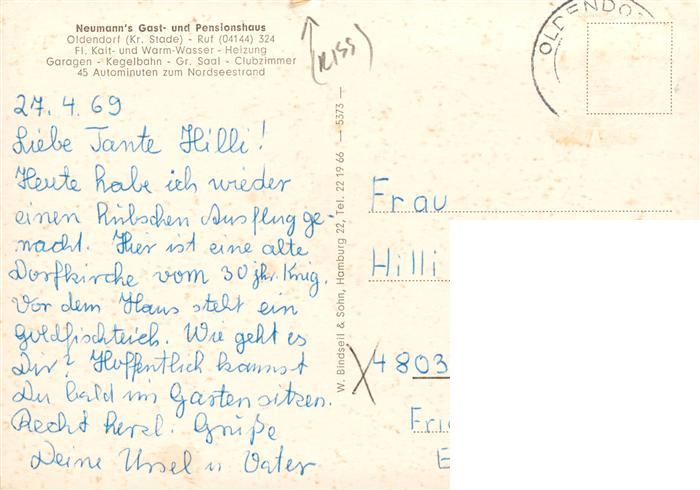 Neumann's Gast- und Pensionshaus
Oldendorf (Kr. Stade) - Ruf (04144) 324
Fl. Kalt- und Warm-Wasser - Heizung
Garagen - Kegelbahn - Gr. Saal - Clubzimmer
45 Autominuten zum Nordseestrand
27.4.69
Liebe Tante Hilli!
Heute habe ich wieder
einen hübschen Ausflug ge-
macht. Hier ist eine alte
Dorfkirche vom 30 jhr. Krieg.
Vor dem Haus steht ein
Goldfischteich. Wie geht es
Dir? Hoffentlich kannst
Du bald im Garten sitzen.
Recht herzl. Grüße
Deine Ursel u Vater
W. Bindseil & Sohn, Hamburg 22, Tel. 22 19 66 — 5373 —
OLDENDO
Frau
Hilli
4803
Frie